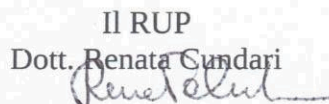 Il RUP
Dott. Renata Cundari